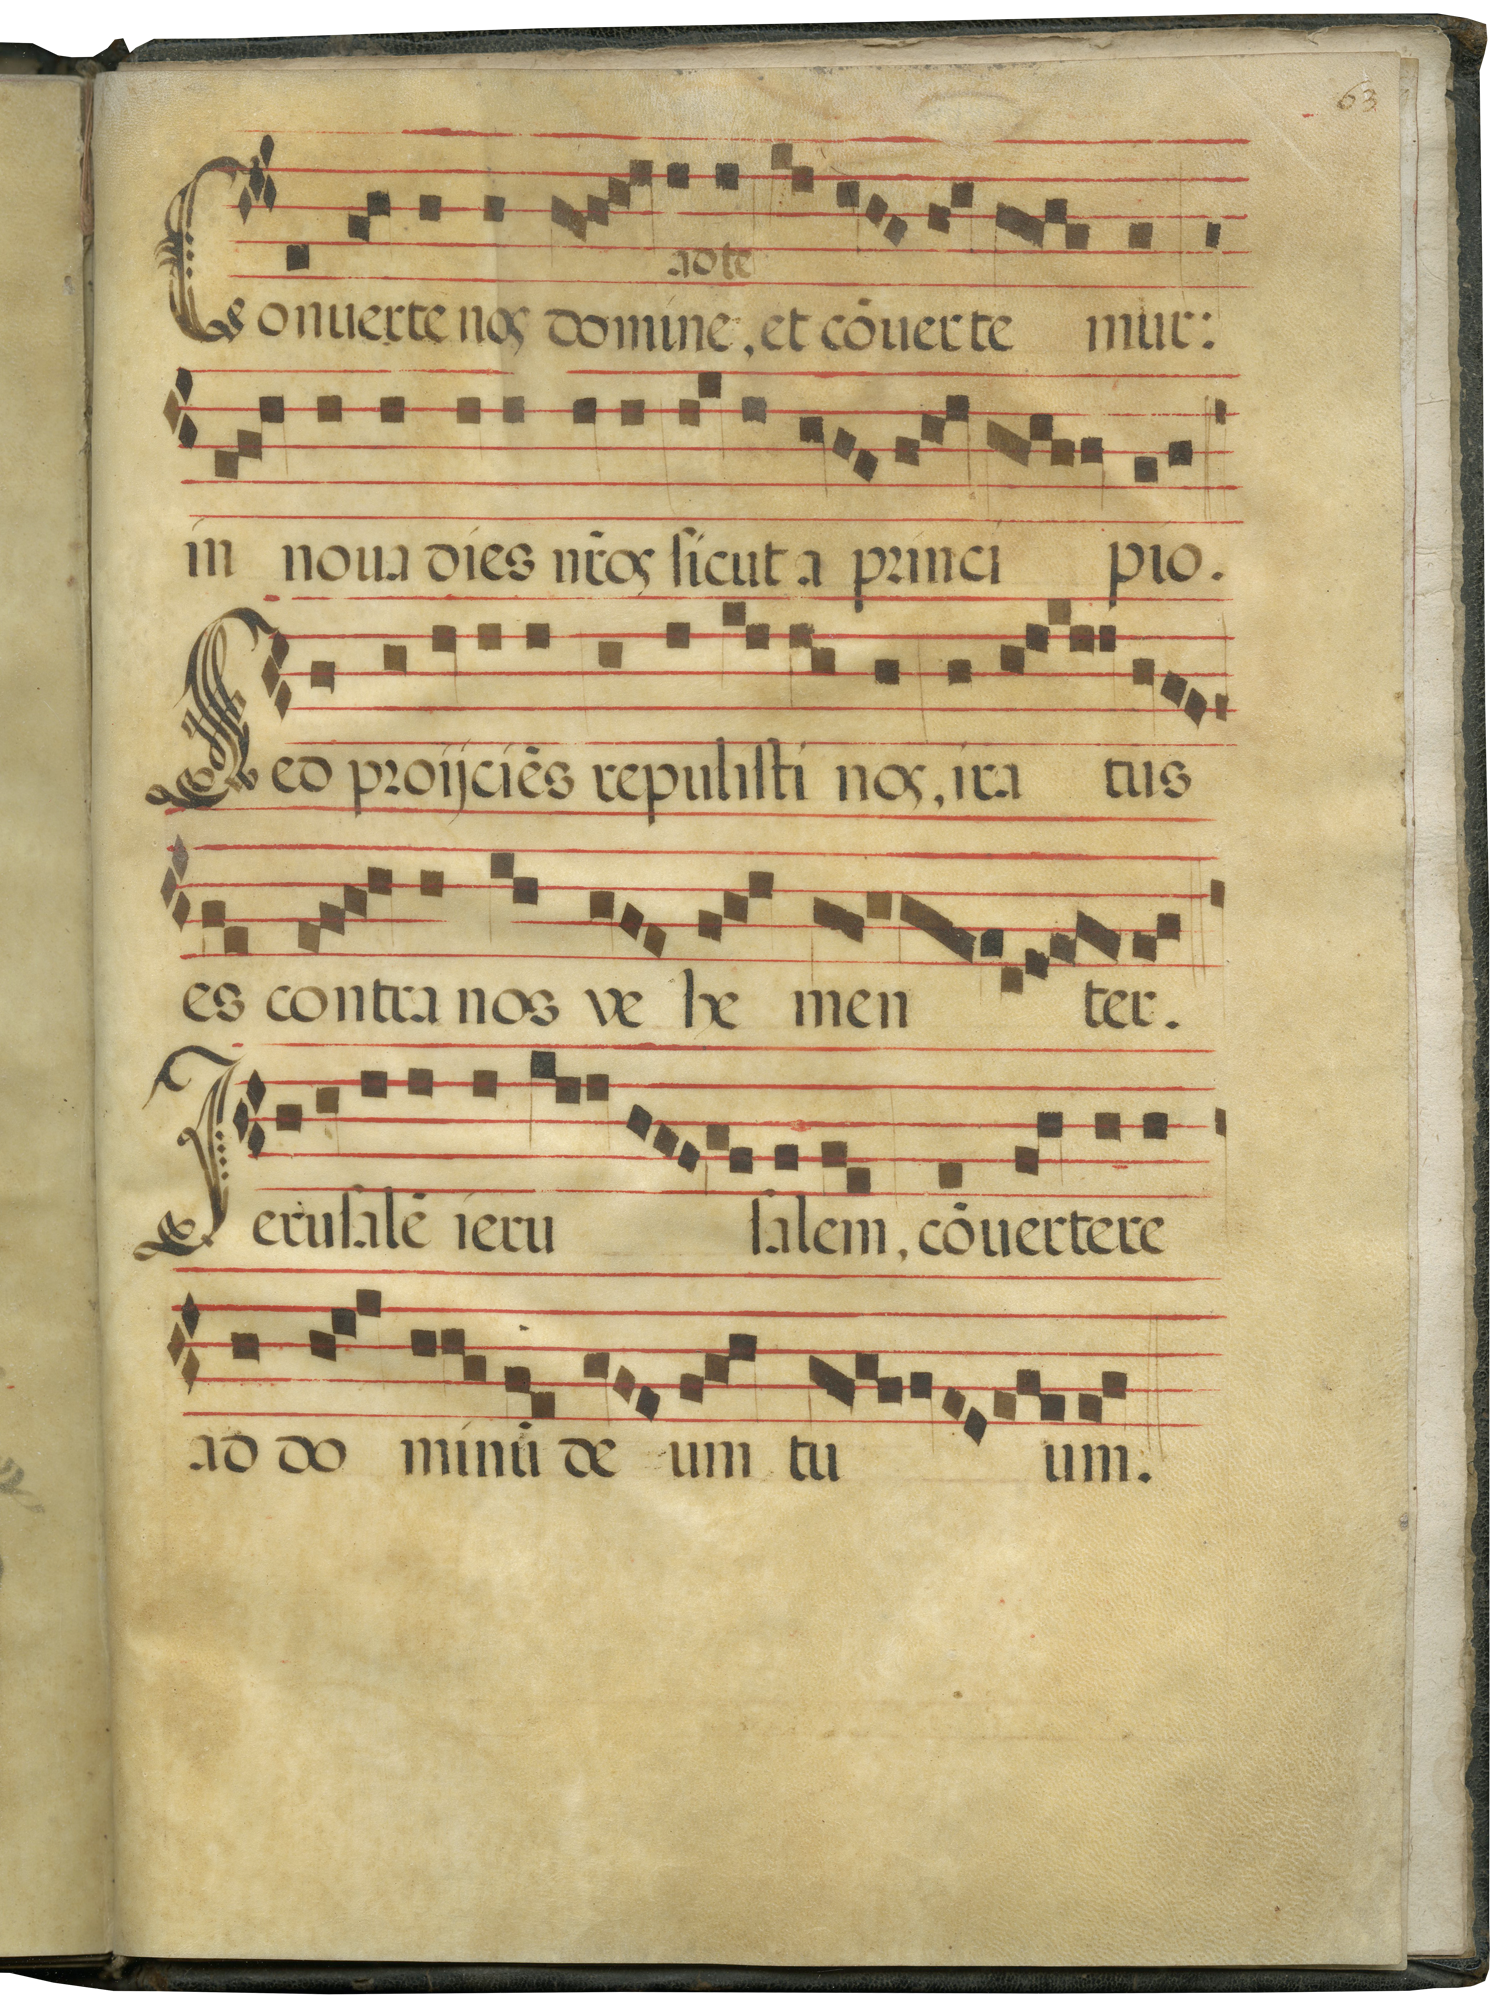 63
ad te
Conuerte nos domine, et cōuerte mur:
in noua dies nr̄os sicut a princi pio.
Sed proijciēs repulisti nos, ira tus
es contra nos ve he men ter.
Ierusalē ieru salem, cōuertere
ad do minū de um tu um.